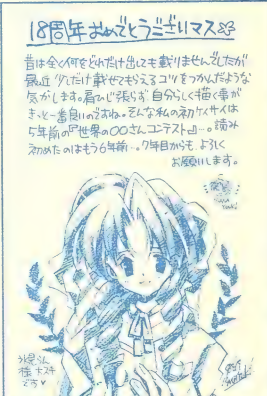 18周年おめでとうございマス
昔は全く何をどれだけ出しても載りませんでしたが
最近 少しだけ載せてもらえるコツをつかんだような
気がします。肩ひじ張らず 自分らしく描く事が
きっと一番良いのですね。そんな私の初ケイサイは
5年前の『世界の○○さんコンテスト』…。読み
初めたのはもう6年前…。7年目からも、よろしく
お願いします。
です♥